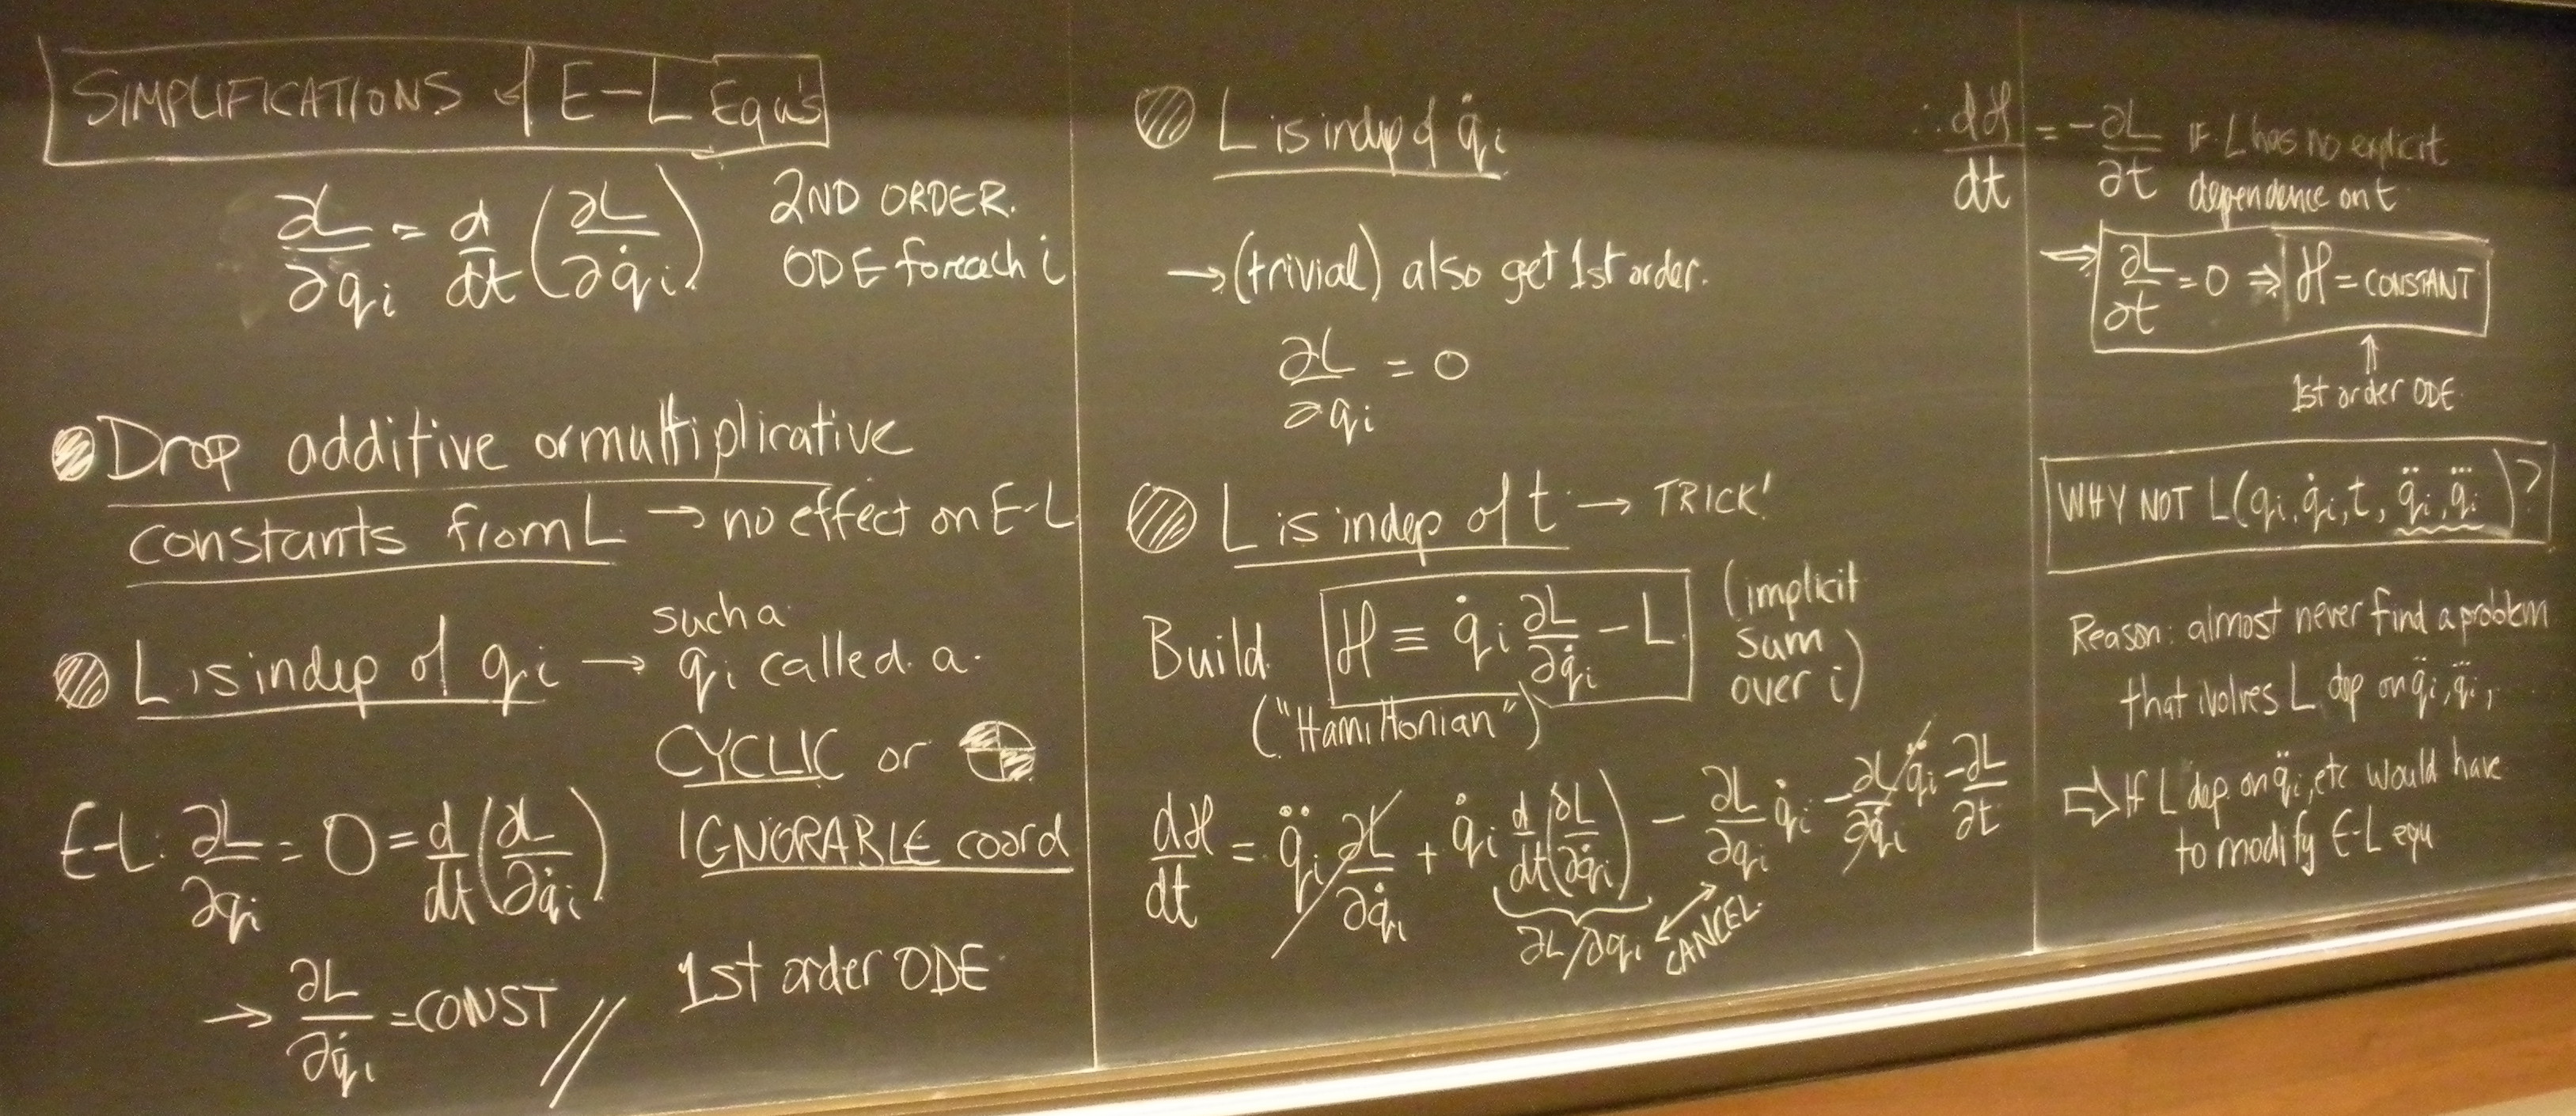 SIMPLIFICATIONS of E-L Equ's
∂L/∂qi = d/dt (∂L/∂q̇i) 2ND ORDER.
ODE foreach i
Drop additive or multiplicative
constants from L → no effect on E-L
L is indep of qi → such a
qi called a
CYCLIC or
IGNORABLE coord
E-L: ∂L/∂qi = 0 = d/dt (∂L/∂q̇i)
→ ∂L/∂q̇i = CONST // 1st order ODE
L is indep of q̇i
→ (trivial) also get 1st order.
∂L/∂qi = 0
L is indep of t → TRICK!
Build H ≡ q̇i ∂L/∂q̇i - L (implicit
sum
over i)
("Hamiltonian")
dH/dt = q̈i ∂L/∂q̇i + q̇i d/dt (∂L/∂q̇i) - ∂L/∂qi q̇i - ∂L/∂q̇i q̈i - ∂L/∂t
∂L/∂qi CANCEL
∴ dH/dt = -∂L/∂t IF L has no explicit
dependence on t
⇒ ∂L/∂t = 0 ⇒ H = CONSTANT
↑
1st order ODE
WHY NOT L(qi, q̇i, t, q̈i, q⃛i)?
Reason: almost never find a problem
that ivolves L dep on q̈i, q⃛i,
⇒ If L dep. on q̈i, etc would have
to modify E-L equ